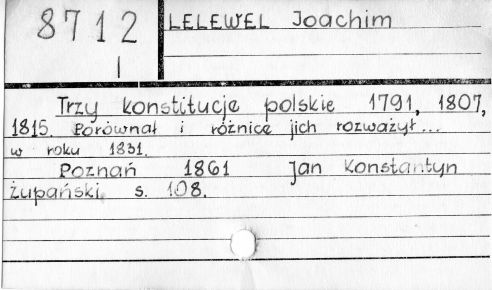 8712
I
LELEWEL Joachim
Trzy konstitucje polskie 1791, 1807,
1815. Porównał i różnicę jich rozważył...
w roku 1831.
Poznań 1861 Jan Konstantyn
Żupański s. 108.